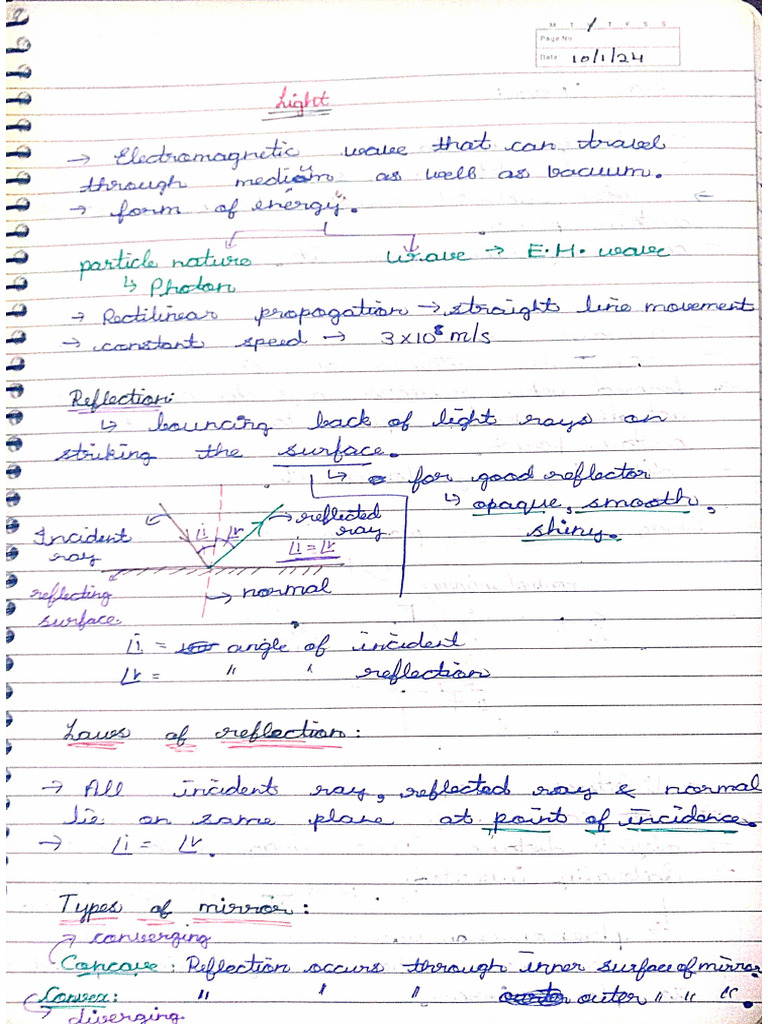 M T / T F S S
Page No
Date 10/1/24
Light
→ Electromagnetic wave that can travel
through medium as well as vacuum.
→ form of energy.
particle nature
Wave → E.M. wave
↳ Photon
→ Rectilinear propogation → straight line movement
→ constant speed → 3×10⁸ m/s
Reflection:
↳ bouncing back of light rays on
striking the surface.
↳ for good reflector
↳ opaque, smooth,
shiny.
Incident
ray
∠i ∠r
→ reflected
ray
∠i = ∠r
reflecting
surface.
→ normal
∠i = angle of incident
∠r = " " reflection
Laws of reflection:
→ All incident ray, reflected ray & normal
lie on same plane at point of incidence.
→ ∠i = ∠r.
Types of mirror:
converging
Concave: Reflection occurs through inner surface of mirror
Convex: " " " outer " " ".
diverging